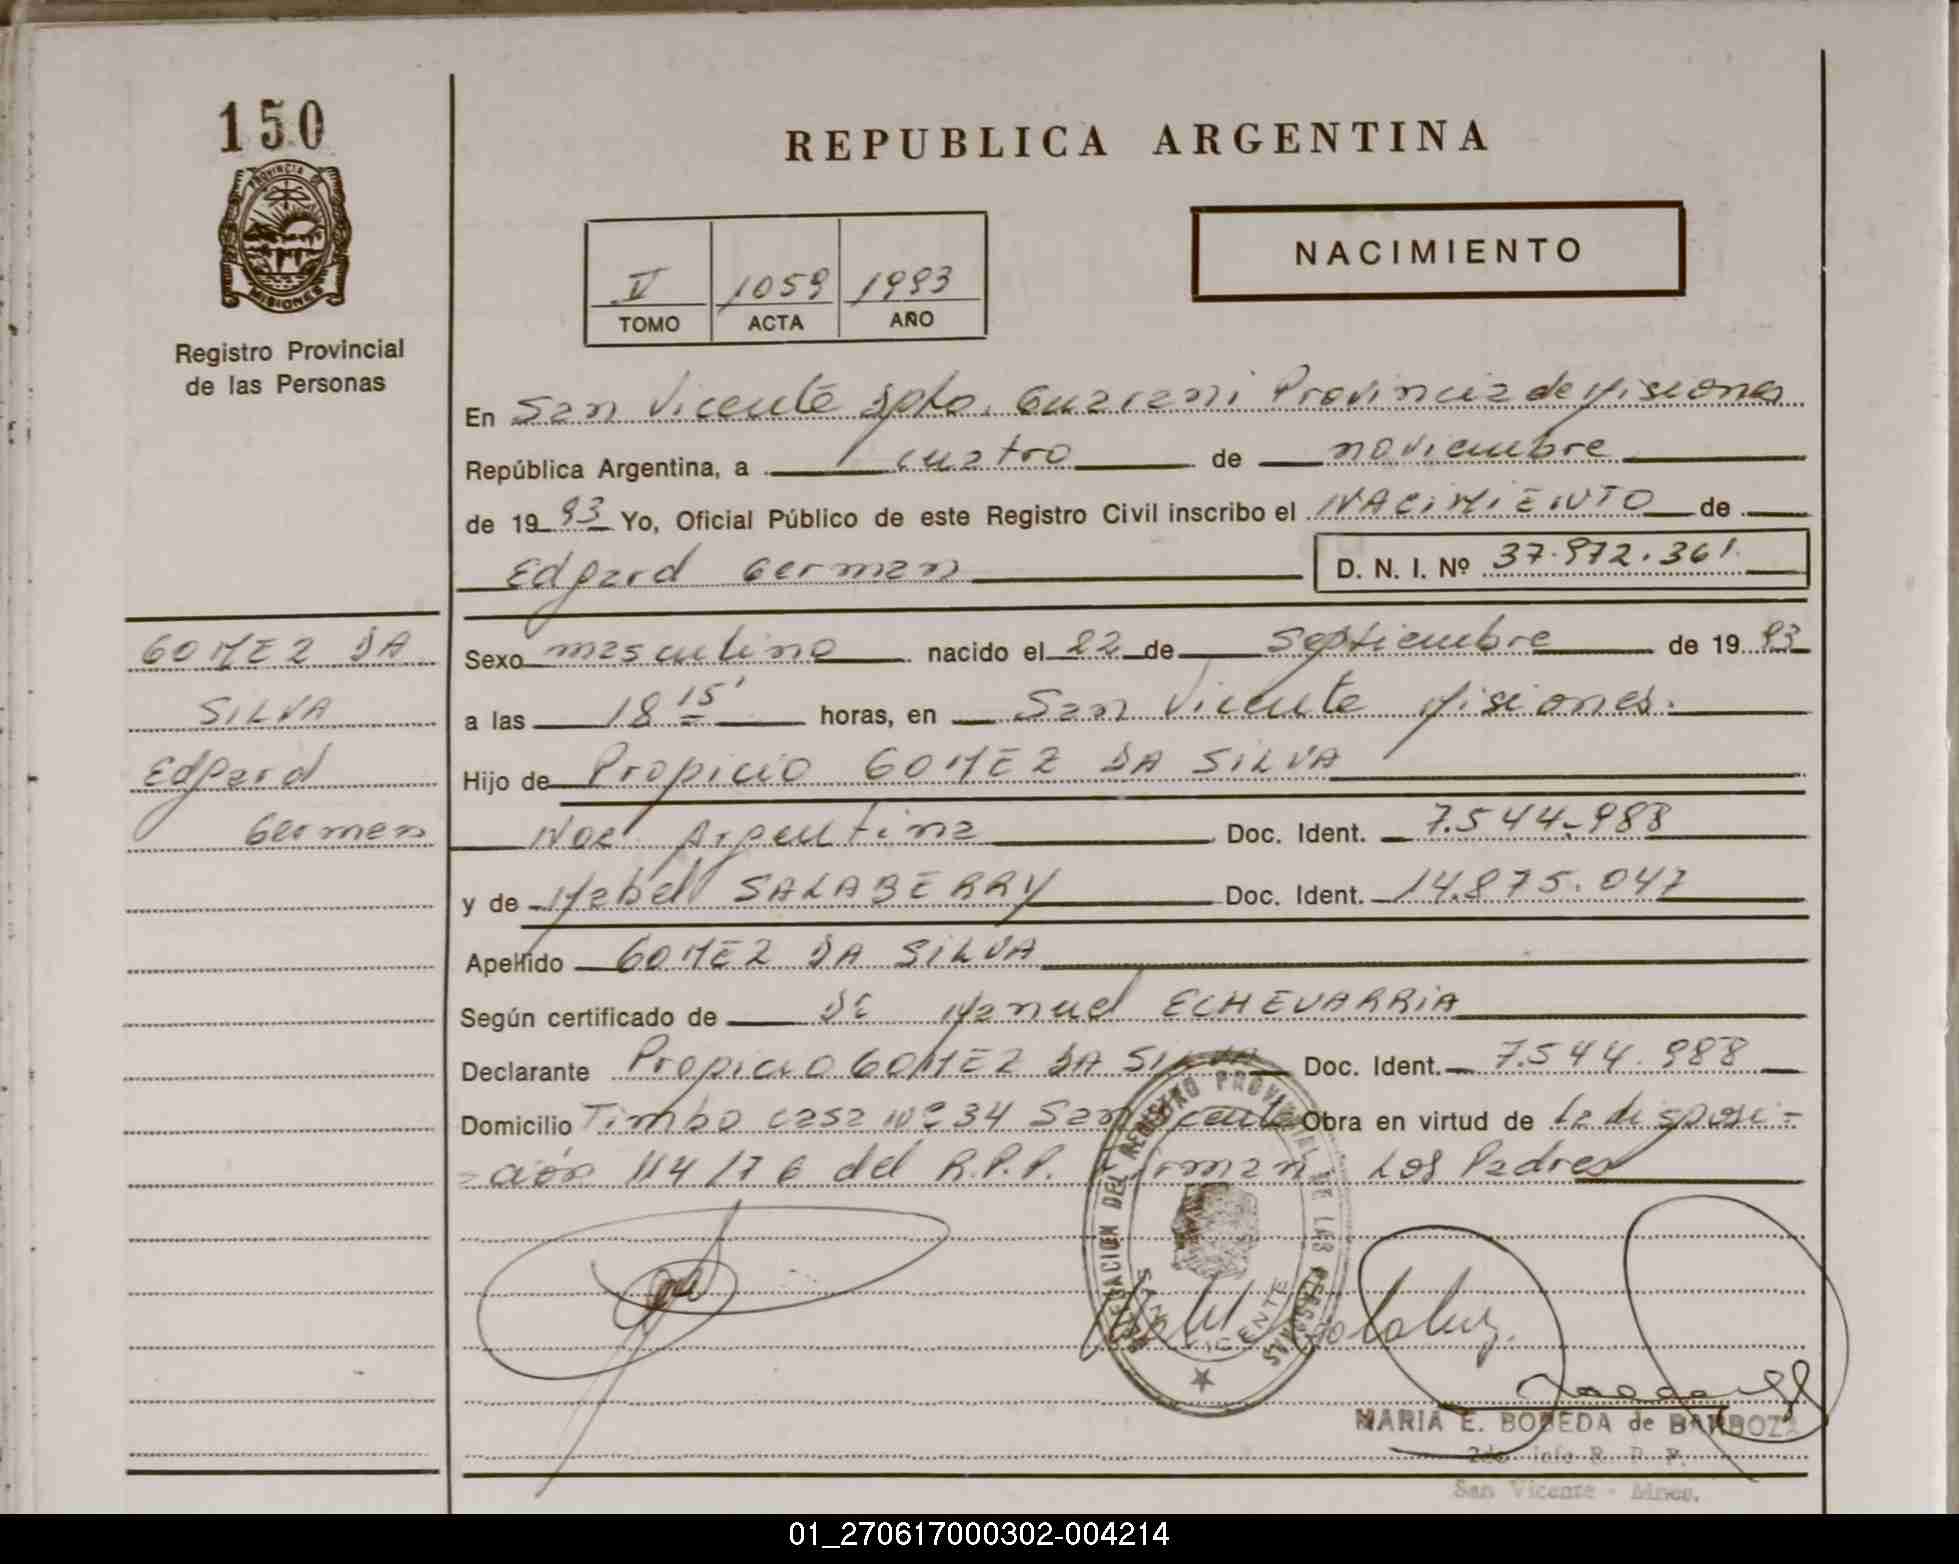 150
PROVINCIA DE
MISIONES
Registro Provincial
de las Personas
REPUBLICA ARGENTINA
NACIMIENTO
V 1059 1993
TOMO ACTA AÑO
En San Vicente Dpto. Guarani Provincia de Misiones
República Argentina, a cuatro de noviembre
de 1993 Yo, Oficial Público de este Registro Civil inscribo el NACIMIENTO de
Edgard German D. N. I. Nº 37.972.361
GOMEZ DA
SILVA
Edgard
German
Sexo masculino nacido el 22 de Septiembre de 1993
a las 18 15' horas, en San Vicente Misiones.
Hijo de Propicio GOMEZ DA SILVA
Nac Argentina Doc. Ident. 7.544.988
y de Mabel SALABERRY Doc. Ident. 14.875.047
Apellido GOMEZ DA SILVA
Según certificado de Dr Manuel ECHEVARRIA
Declarante Propicio GOMEZ DA SILVA Doc. Ident. 7.544.988
Domicilio Timbo casa Nº 34 San Vicente Obra en virtud de La disposi=
=ción 114/76 del R.P.P. Firman Los Padres
DELEGACION DEL REGISTRO PROVINCIAL DE LAS PERSONAS
SAN VICENTE
MARIA E. BOBEDA de BARBOZA
R. P. P.
San Vicente - Mnes.
01_270617000302-004214